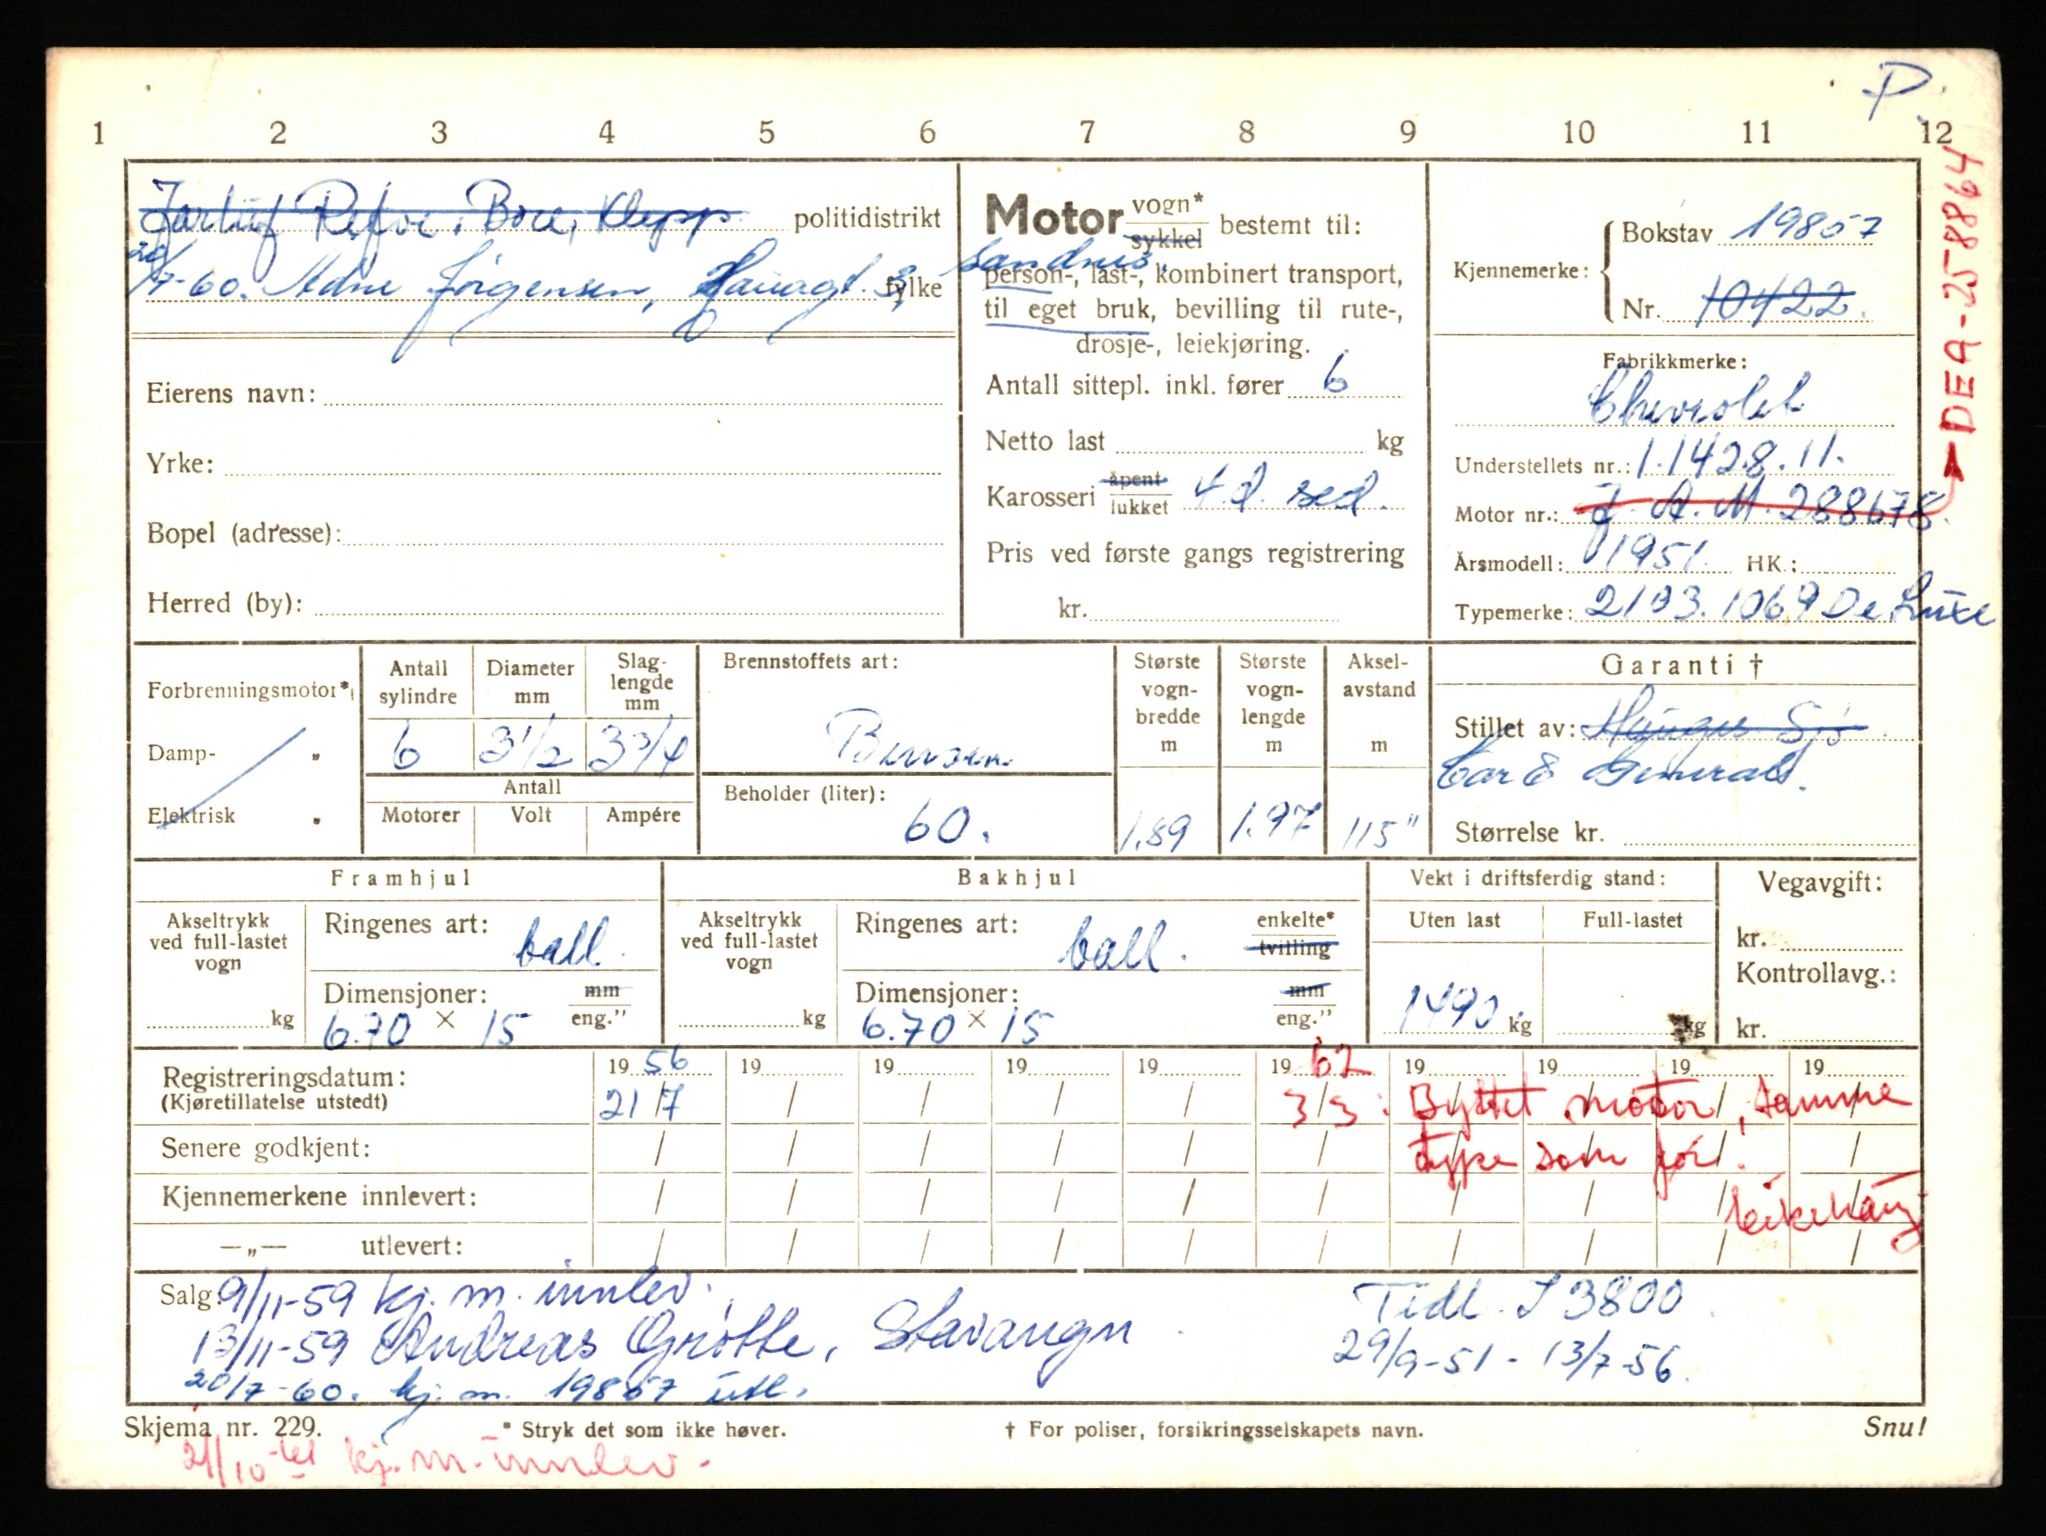 P.
1 2 3 4 5 6 7 8 9 10 11 12
Refve, Bore, Klepp politidistrikt
20/7-60. Adne Jørgensen, Haugt. 3, fylke
Sandnes.
Eierens navn:
Yrke:
Bopel (adresse):
Herred (by):
Motor vogn* sykkel bestemt til:
person-, last-, kombinert transport,
til eget bruk, bevilling til rute-,
drosje-, leiekjøring.
Antall sittepl. inkl. fører 6
Netto last kg
Karosseri åpent lukket 4 d. sed.
Pris ved første gangs registrering
kr.
Kjennemerke: Bokstav 19857
Nr. 10422.
Fabrikkmerke:
Chevrolet
Understellets nr.: 1.1428.11.
Motor nr.: J.A.M. 288678.
DEA-258864
Årsmodell: 1951. HK.:
Typemerke: 2103.1069 De Luxe
Forbrenningsmotor*,
Damp- „
Elektrisk „
Antall sylindre 6
Diameter mm 3 1/2
Slag-lengde mm 3 3/4
Antall
Motorer Volt Ampére
Brennstoffets art:
Bensin.
Beholder (liter):
60.
Største vogn-bredde m 1.89
Største vogn-lengde m 1.97
Aksel-avstand m 115"
Garanti †
Stillet av: Sjø
Car & General.
Størrelse kr.
Framhjul
Akseltrykk ved full-lastet vogn
kg
Ringenes art: ball.
Dimensjoner: mm eng."
6.70 × 15
Bakhjul
Akseltrykk ved full-lastet vogn
kg
Ringenes art: ball. enkelte* tvilling
Dimensjoner: mm eng."
6.70 × 15
Vekt i driftsferdig stand:
Uten last Full-lastet
1490. kg kg
Vegavgift:
kr.
Kontrollavg.:
kr.
19 56 19 19 19 19 19 62 19 19 19 19
Registreringsdatum:
(Kjøretillatelse utstedt) 21/7 / / / / 3/3: Byttet motor, samme
Senere godkjent: / / / / / / type som før.
Kjennemerkene innlevert: / / / / / / / / / /
—„— utlevert: / / / / / / / / / /
Salg: 9/11-59 kj. m. innlev.
13/11-59 Andreas Grøtte, Stavanger
20/7-60. kj. m. 19857 utl.
Tidl. I 3800.
29/9-51 - 13/7-56.
Skjema nr. 229. * Stryk det som ikke høver. † For poliser, forsikringsselskapets navn. Snu!
21/10-61 kj. m. innlev.